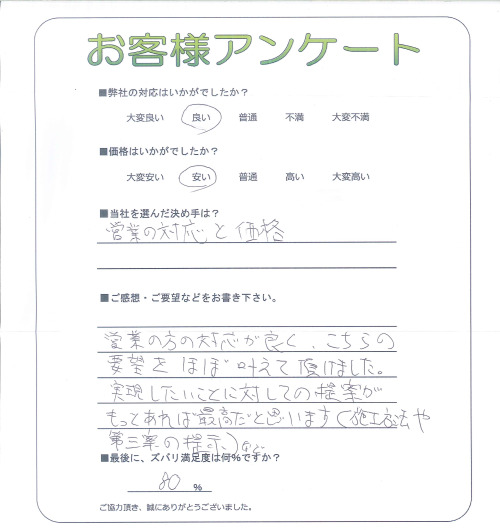 お客様アンケート
■弊社の対応はいかがでしたか？
大変良い 良い 普通 不満 大変不満
■価格はいかがでしたか？
大変安い 安い 普通 高い 大変高い
■当社を選んだ決め手は？
営業の対応と価格
■ご感想・ご要望などをお書き下さい。
営業の方の対応が良く、こちらの
要望をほぼ叶えて頂けました。
実現したいことに対しての提案が
もっとあれば最高だと思います(施工方法や
第三案の提示)など
■最後に、ズバリ満足度は何%ですか？
80 %
ご協力頂き、誠にありがとうございました。